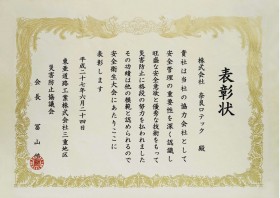 表彰状
株式会社 奈良ロテック 殿
貴社は当社の協力会社として
安全管理の重要性を深く認識し
旺盛な安全意欲と優秀な技術をもって
災害防止に格段の努力を払われました
その功績は他の模範と認められるので
安全衛生大会にあたりここに
表彰します
平成二十七年六月二十四日
東亜道路工業株式会社三重地区
災害防止協議会
会長 冨山